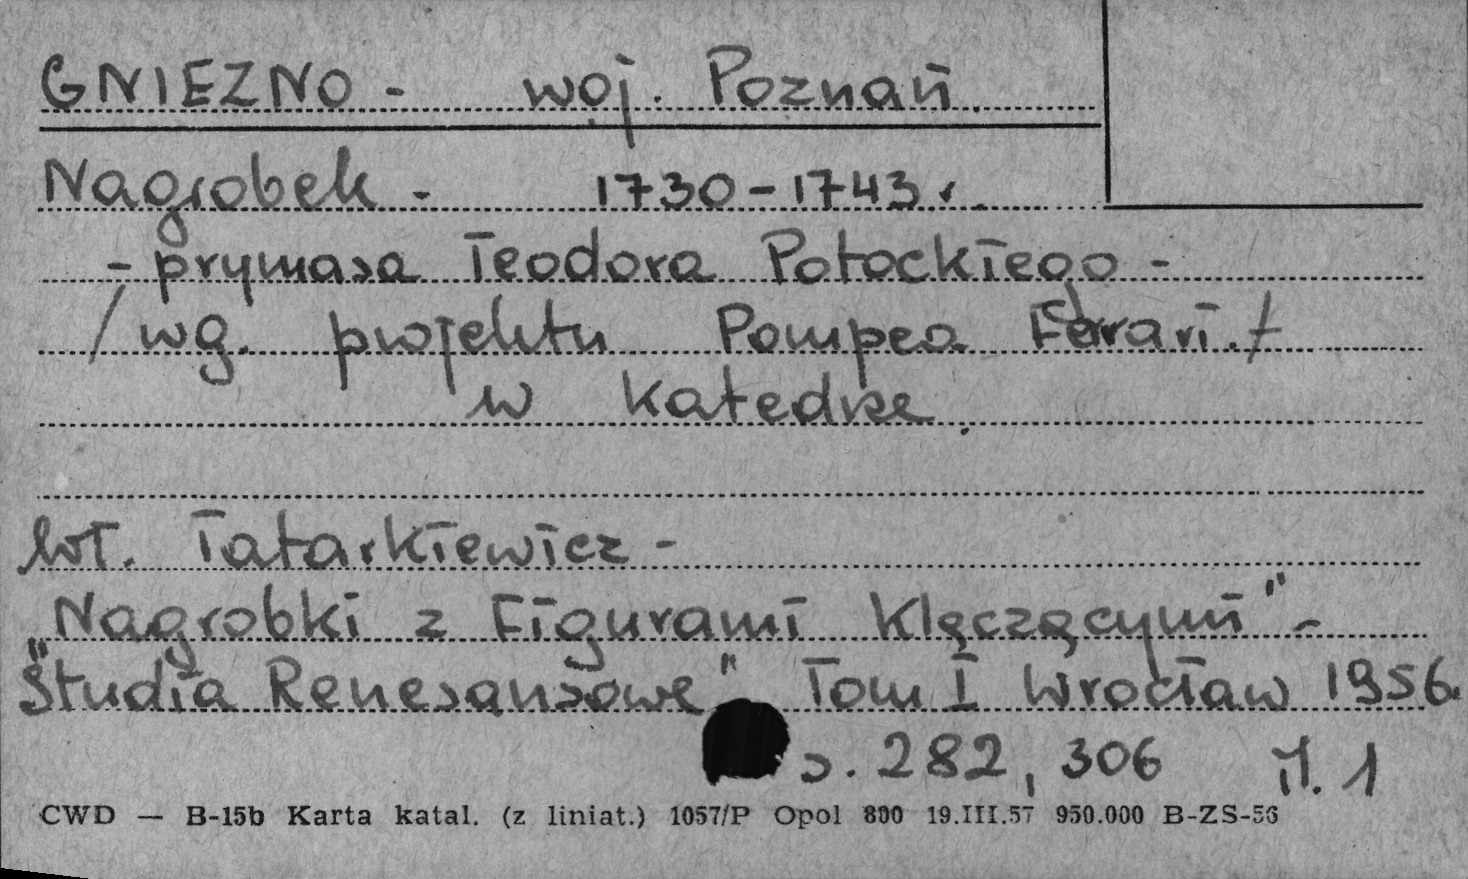 GNIEZNO - woj. Poznań.
Nagrobek - 1730-1743 r.
- prymasa Teodora Potockiego -
/ wg. projektu Pompea Ferrari. /
w katedrze.
Wł. Tatarkiewicz -
"Nagrobki z Figurami Klęczącymi" -
"Studia Renesansowe" Tom I Wrocław 1956.
s. 282, 306 il. 1
CWD — B-15b Karta katal. (z liniat.) 1057/P Opol 800 19.III.57 950.000 B-ZS-56